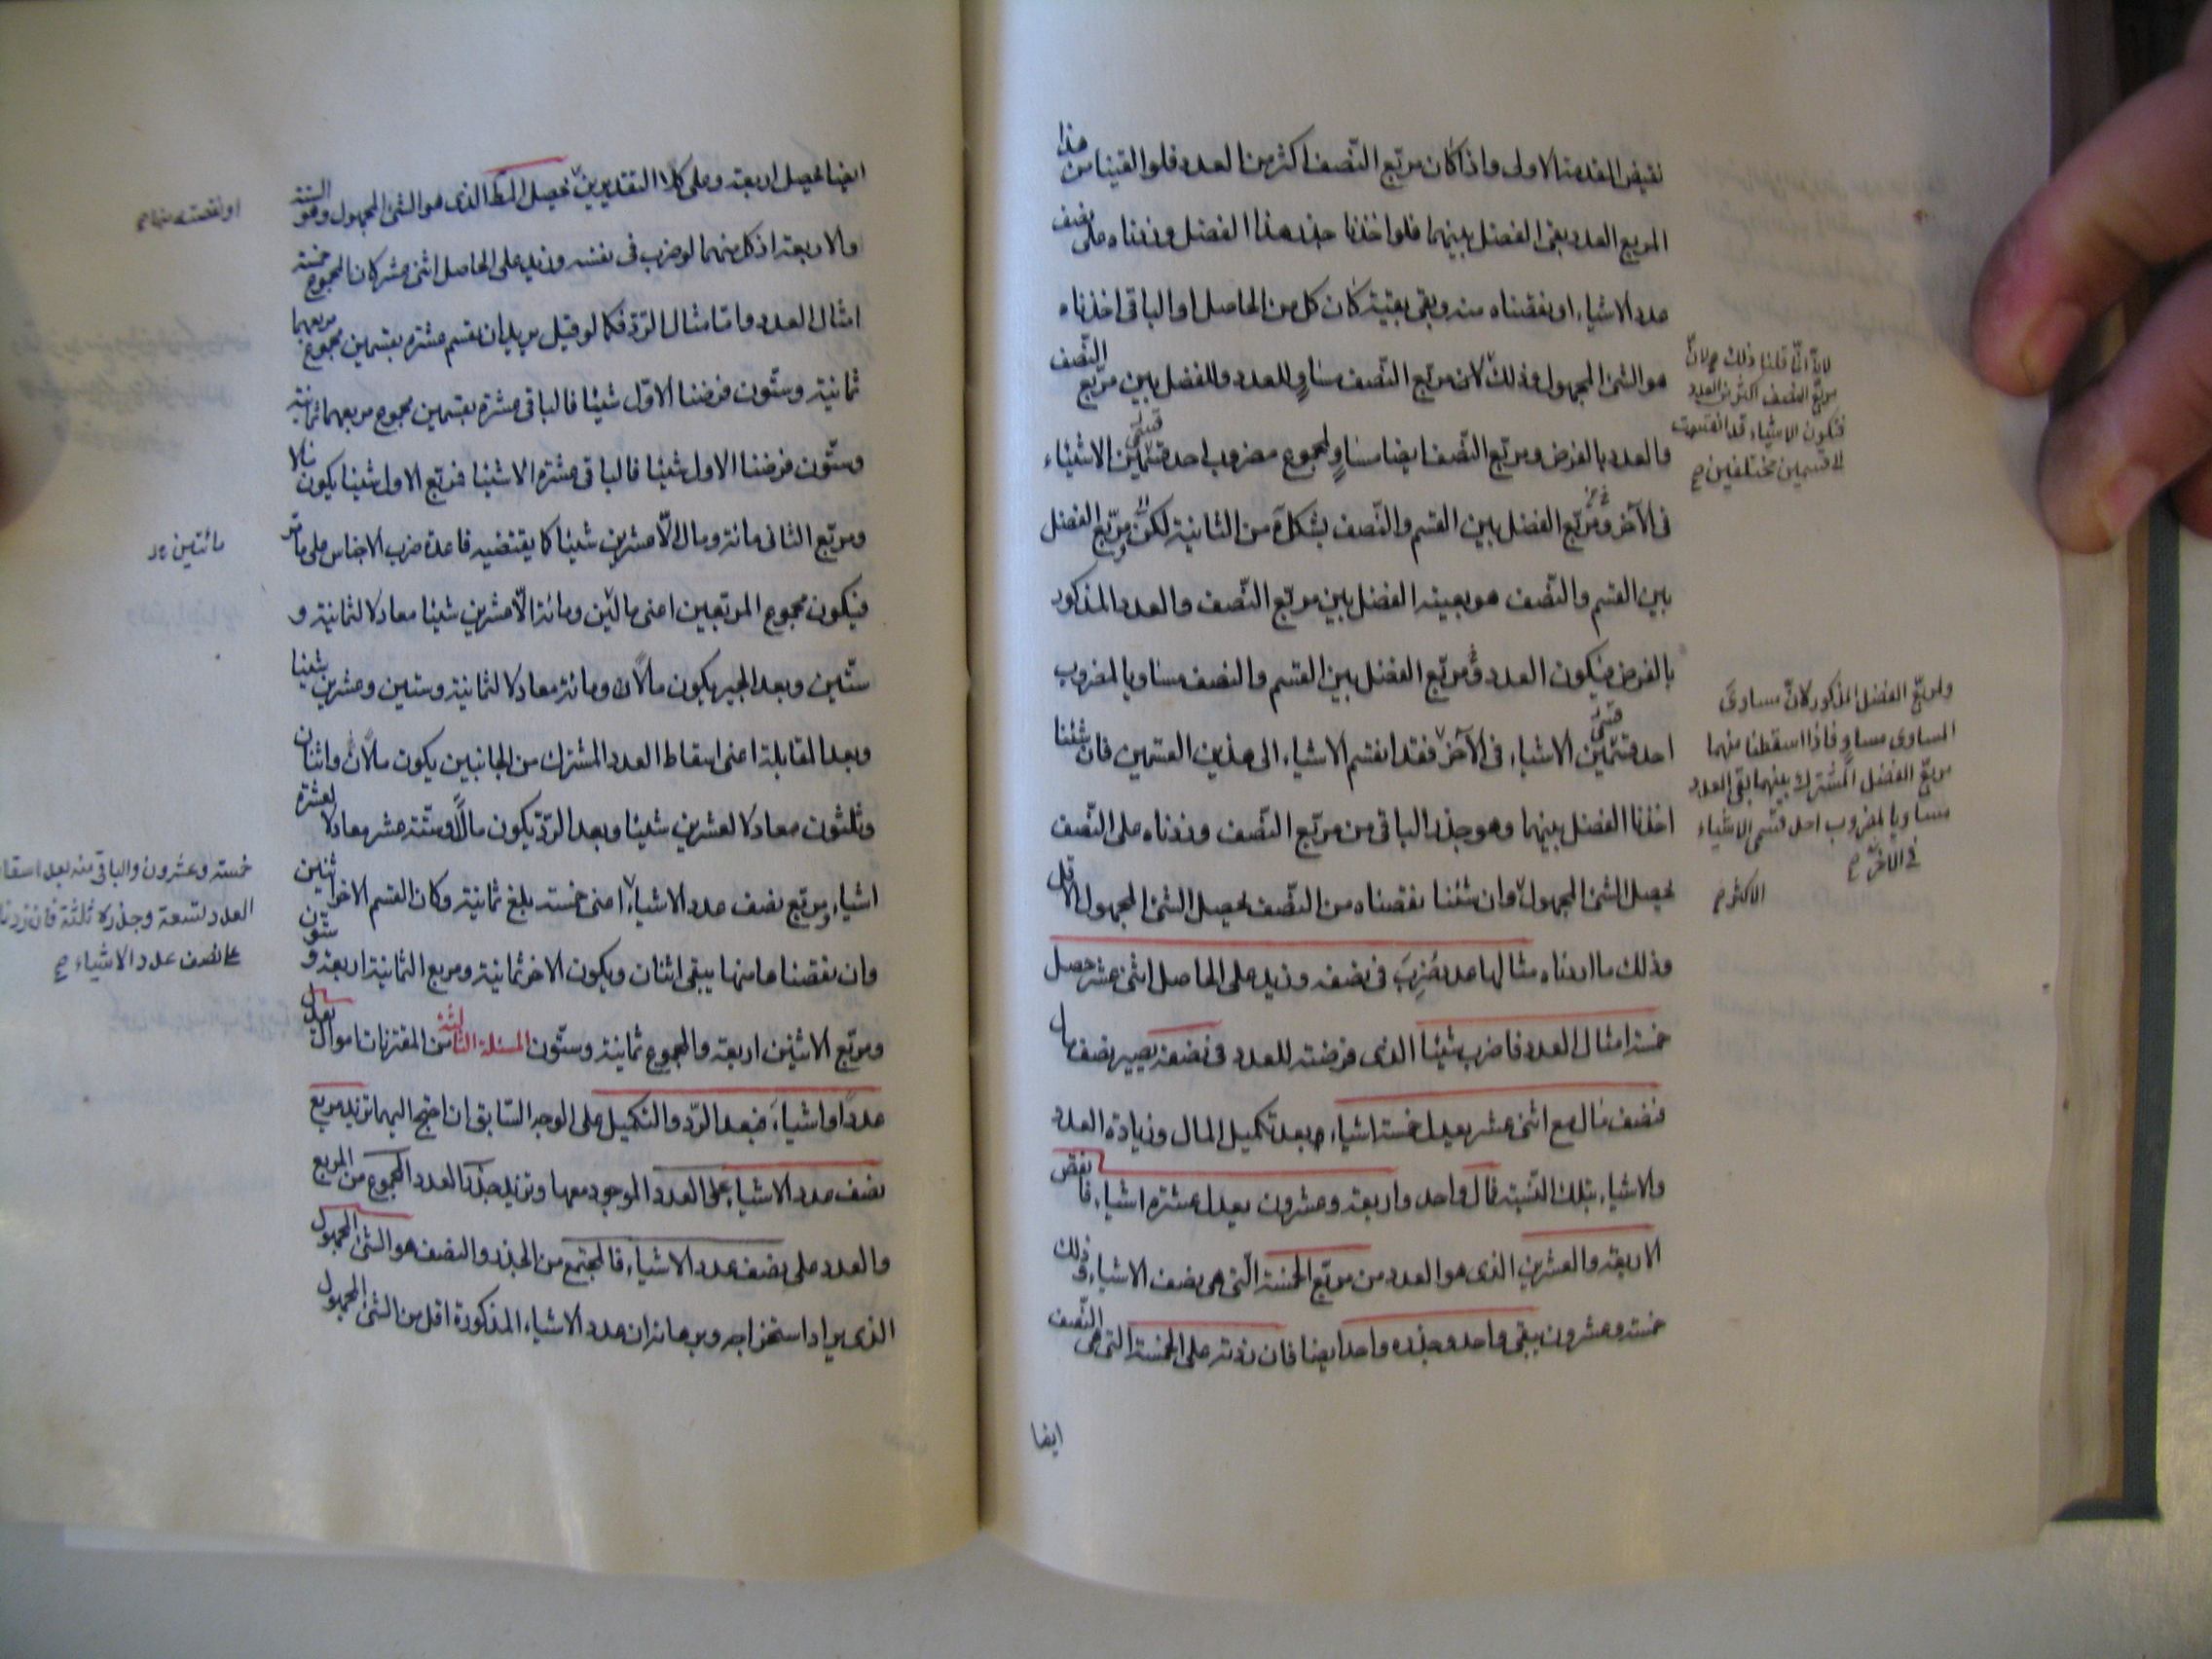 نقيض المقدمة الاولى واذا كان مربّع النّصف اكثر من العدد فلو القينا من هذا
المربع العدد بقى الفضل بينهما فلو اخذنا جذر هذا الفضل وزدناه على نصف
عدد الاشياء او نقصناه منه وبقى بقيته كان كل من الحاصل او الباقى اخذناه
هو الشئ المجهول وذلك لان مربّع النّصف مساوٍ للعدد وللفضل بين مربّع النّصف
والعدد بالفرض ومربّع النّصف ايضا مساوٍ لمجموع مضروب احد قسمى الاشياء
فى الآخر ومربّع الفضل بين القسم والنّصف بشكل ٓه من الثانية لكن مربّع الفضل
بين القسم والنّصف هو بعينه الفضل بين مربّع النّصف والعدد المذكور
بالفرض فيكون العدد ومربّع الفضل بين القسم والنصف مساويا لمضروب
احد قسمى الاشياء فى الآخر فقد انقسم الاشياء الى هذين القسمين فان شئنا
اخذنا الفضل بينهما وهو جذر الباقى من مربّع النّصف وزدناه على النّصف
يحصل الشئ المجهول وان شئنا نقصناه من النّصف يحصل الشئ المجهول الاقل
وذلك ما اردناه مثالها عدد ضُرِبَ فى نصفه وزيد على الحاصل اثنى عشر حصل
خمسة امثال العدد فاضرب شيئا الذى فرضته للعدد فى نصفه يصير نصف مال
فنصف مال مع اثنى عشر يعدل خمسة اشياء وبعد تكميل المال وزيادة العدد
والاشياء بتلك النّسبة مال واحد واربعة وعشرون يعدل عشرة اشياء فانقص
الاربعة والعشرين الذى هو العدد من مربّع الخمسة الّتى هى نصف الاشياء وذلك
خمسة وعشرون يبقى واحد وجذره واحد ايضا فان زدته على الخمسة التى هى النّصف
ايضا
لانّا قلنا ذلك لانّ
مربّع النصف اكثر من العدد
فتكون الاشياء قد انقسمت
لا قسمين مختلفين صح
ولمربّع الفضل المذكور لانّ مساوى
المساوى مساوٍ فاذا اسقطنا منهما
مربّع الفضل المشترك بينهما بقى العدد
مساويا لمضروب احد قسمى الاشياء
فى الآخر صح
الاكثر صح
ايضا يحصل اربعة وعلى كلا التقديرين يحصل المط الذى هو الشئ المجهول وهو الستة
والاربعة اذ كل منهما لو ضرب فى نفسه وزيد على الحاصل اثنى عشر كان المجموع خمسة
امثال العدد وامّا مثال الرّدّ فكما لو قيل نريد ان نقسم عشرة بقسمين مجموع مربعهما
ثمانية وستّون فرضنا الاوّل شيئا فالباقى عشرة بقسمين مجموع مربعهما ثمانية
وستّون فرضنا الاول شيئا فالباقى عشرة الا شيئا فمربّع الاول شيئا يكون مالا
ومربّع الثانى مائة ومال الاّ عشرين شيئا كما يقتضيه قاعدة ضرب الاجناس على ما مر
فيكون مجموع المربّعين اعنى مالين ومائة الاّ عشرين شيئا معادلا لثمانية و
ستّين وبعد الجبر يكون مالان ومائة معادلا لثمانية وستين وعشرين شيئا
وبعد المقابلة اعنى اسقاط العدد المشترك من الجانبين يكون مالان واثنان
وثلثون معادلا لعشرين شيئا وبعد الردّ يكون مالاً وستّة عشر معادلا لعشرة
اشياء ومربّع نصف عدد الاشياء اعنى خمسة بلغ ثمانية وكان القسم الاخر اثنين
وان نقصناها منها يبقى اثنان ويكون الاخر ثمانية ومربع الثمانية اربعة وستّون
ومربّع الاثنين اربعة والمجموع ثمانية وستّون المسئلة الثالثة من المقترنات اموال تعدل
عدداً واشياءً فبعد الرّد والتكميل على الوجه السّابق ان احتيج اليهما تزيد مربع
نصف عدد الاشياء على العدد الموجود معها وتزيد جذر العدد المجموع من المربع
والعدد على نصف عدد الاشياء فالمجتمع من الجذر والنصف هو الشئ المجهول
الذى يراد استخراجه وبرهانه ان عدد الاشياء المذكورة اقل من الشئ المجهول
او نقصته منها صح
مائتين
خمسة وعشرون والباقى منه بعد اسقاط
العدد تسعة وجذره ثلثة فان زدنا
على نصف عدد الاشياء صح